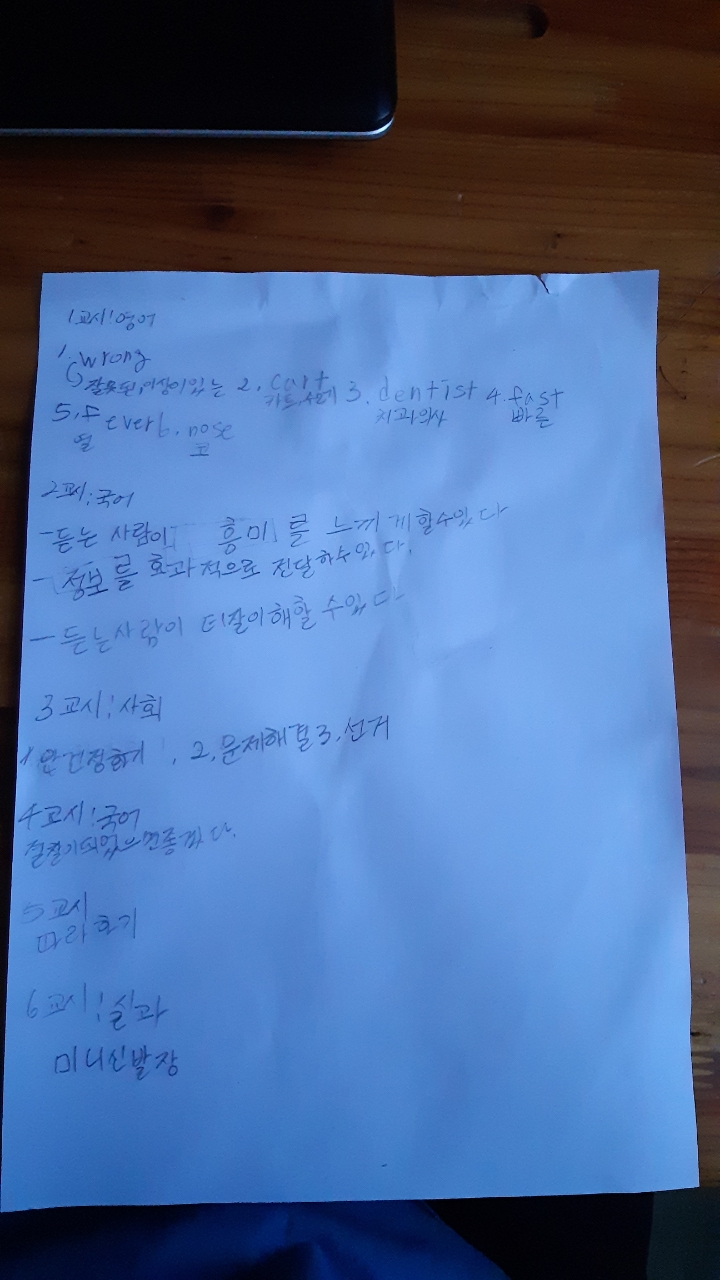 1교시:영어
1. wrong
잘못된,이상이있는 2. cart 3. dentist 4. fast
카트,수레 치과의사 빠른
5. fever 6. nose
열 코
2교시:국어
-듣는 사람이 흥미를 느끼게할수있다
-정보를 효과적으로 전달하수있다.
-듣는사람이 더잘이해할수있다
3교시:사회
1 안건정하기, 2.문제해결 3.선거
4교시:국어
되었으면좋겠다.
5교시
따라하기
6교시:실과
미니신발장